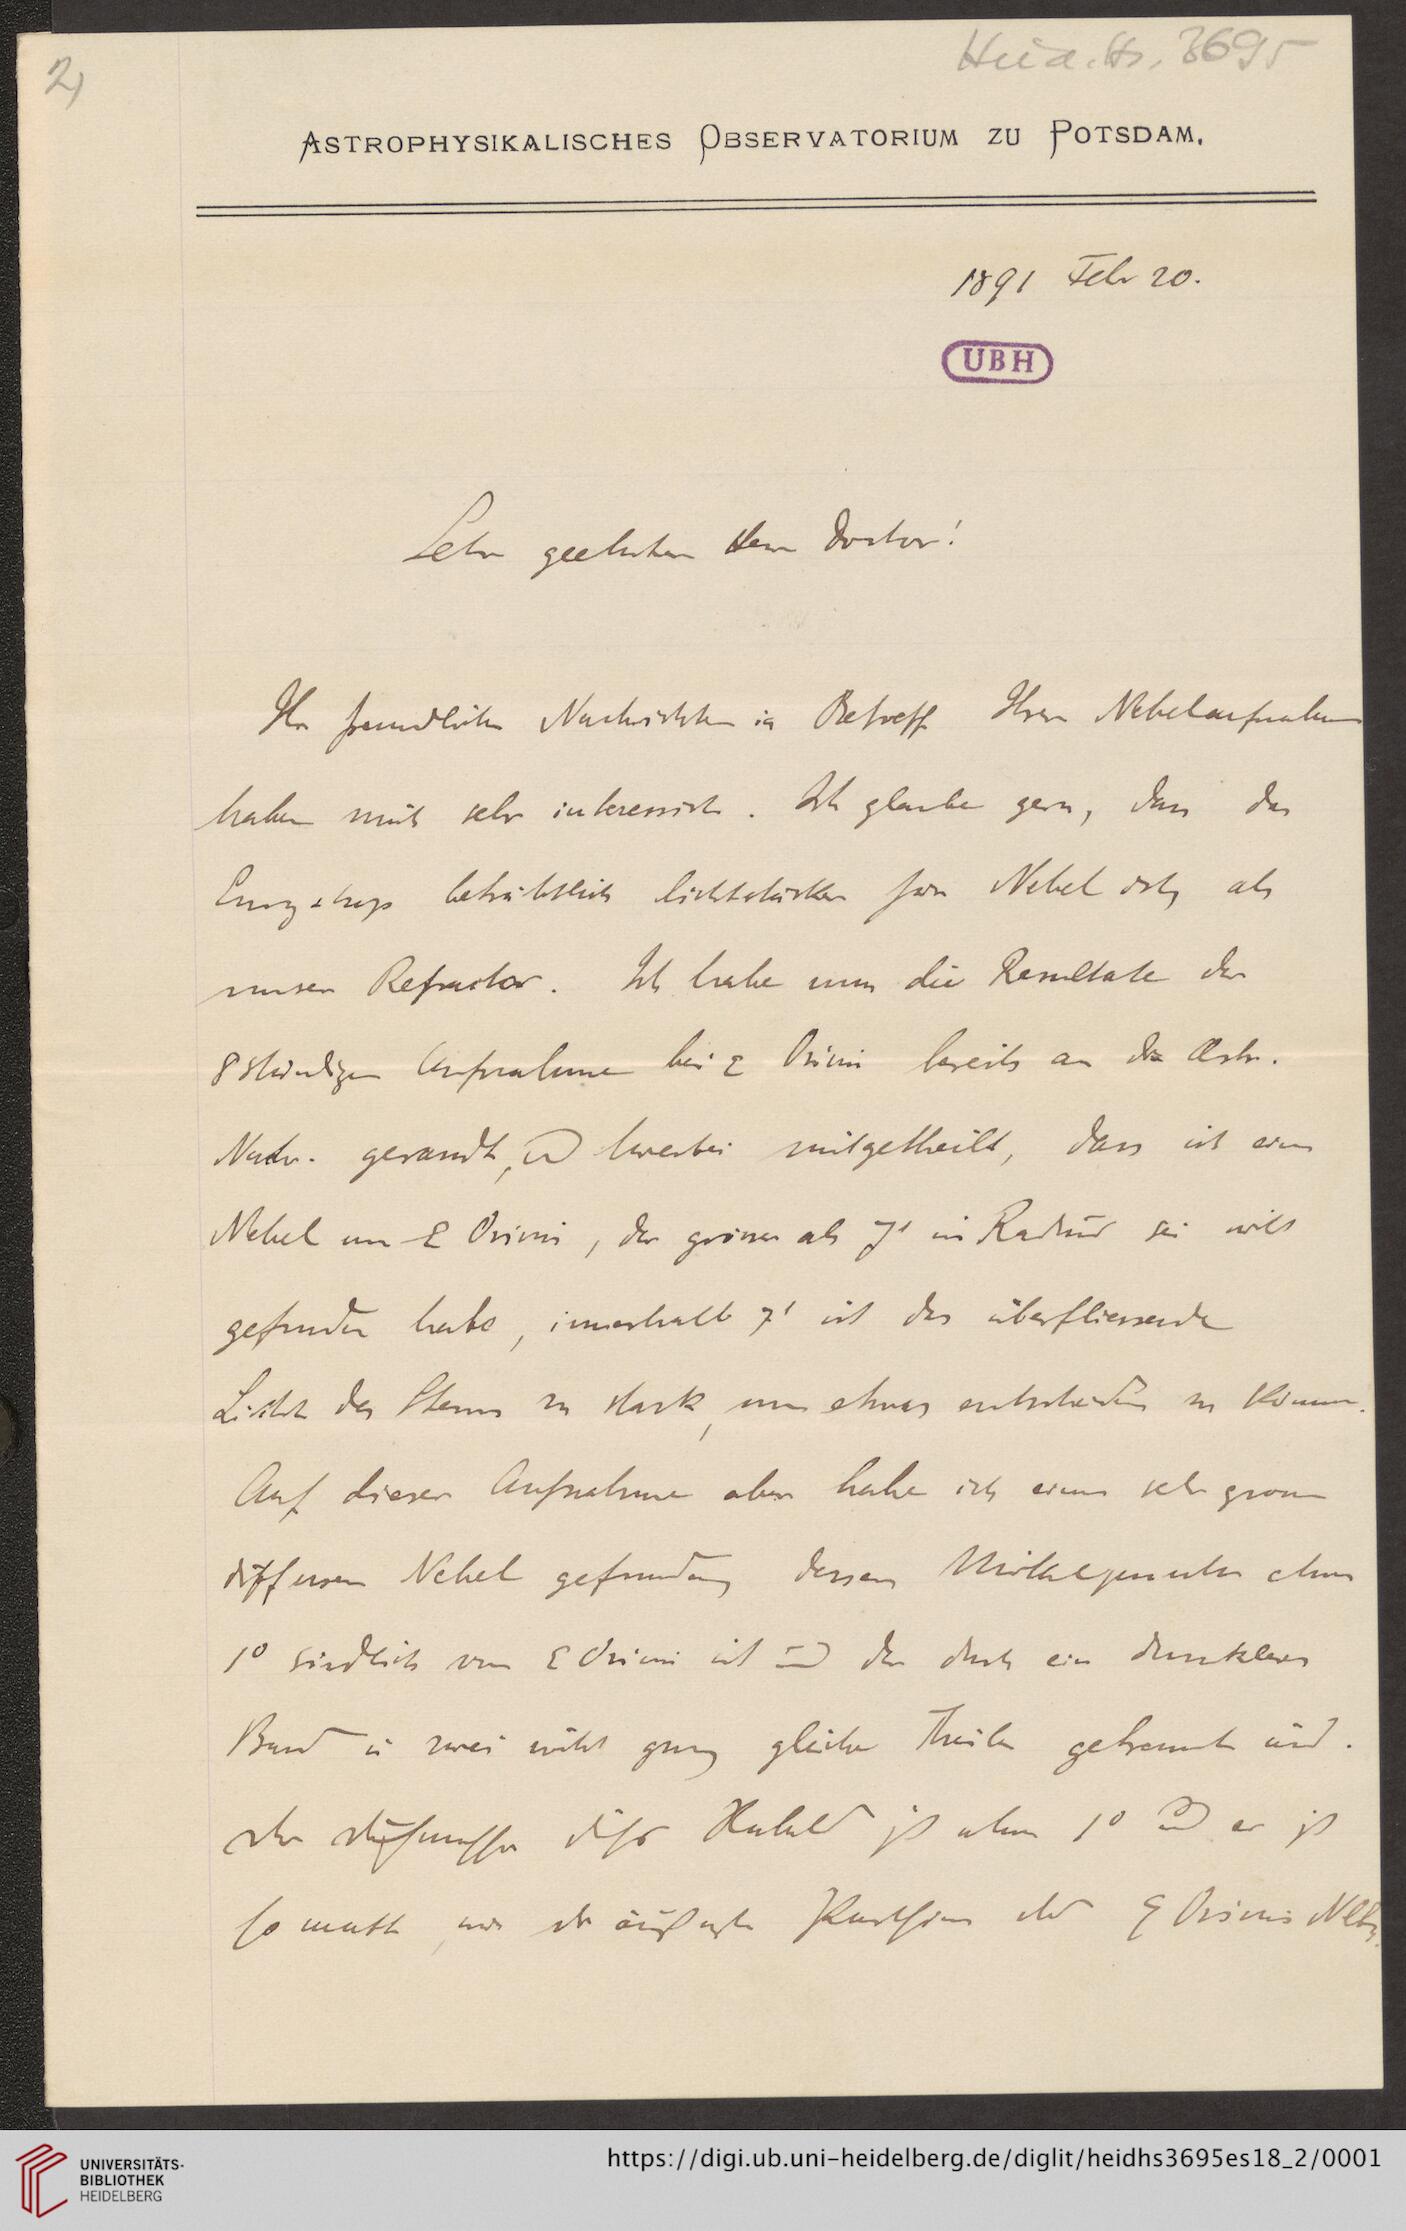 2)
Heid. Hs. 3695
ASTROPHYSIKALISCHES OBSERVATORIUM ZU POTSDAM.
1891 Febr 20.
UBH
Sehr geehrter Herr Doctor!
Ihre freundlichen Nachrichten in Betreff Ihrer Nebelaufnahmen
haben mich sehr interessirt. Ich glaube gern, dass das
Euryskop beträchtlich lichtstärker für Nebel ist, als
unser Refractor. Ich habe nun die Resultate der
8 stündigen Aufnahme bei ε Orionis bereits an die Astr.
Nachr. gesandt, und hierbei mitgetheilt, dass ich einen
Nebel um ε Orionis, der grösser als 7' im Radius sei nicht
gefunden habe, innerhalb 7' ist das überfliessende
Licht des Sterns zu stark, um etwas entscheiden zu können.
Auf dieser Aufnahme aber habe ich einen sehr grossen
diffusen Nebel gefunden, dessen Mittelpunkt etwa
1° südlich von ε Orionis ist und der durch ein dunkleres
Band in zwei nicht ganz gleiche Theile getrennt wird.
Der Durchmesser dieses Nebels ist etwa 1° und er ist
so matt, wie die äußersten Parthien des ζ Orionis Nebels.
UNIVERSITÄTS-
BIBLIOTHEK
HEIDELBERG
https://digi.ub.uni-heidelberg.de/diglit/heidhs3695es18_2/0001